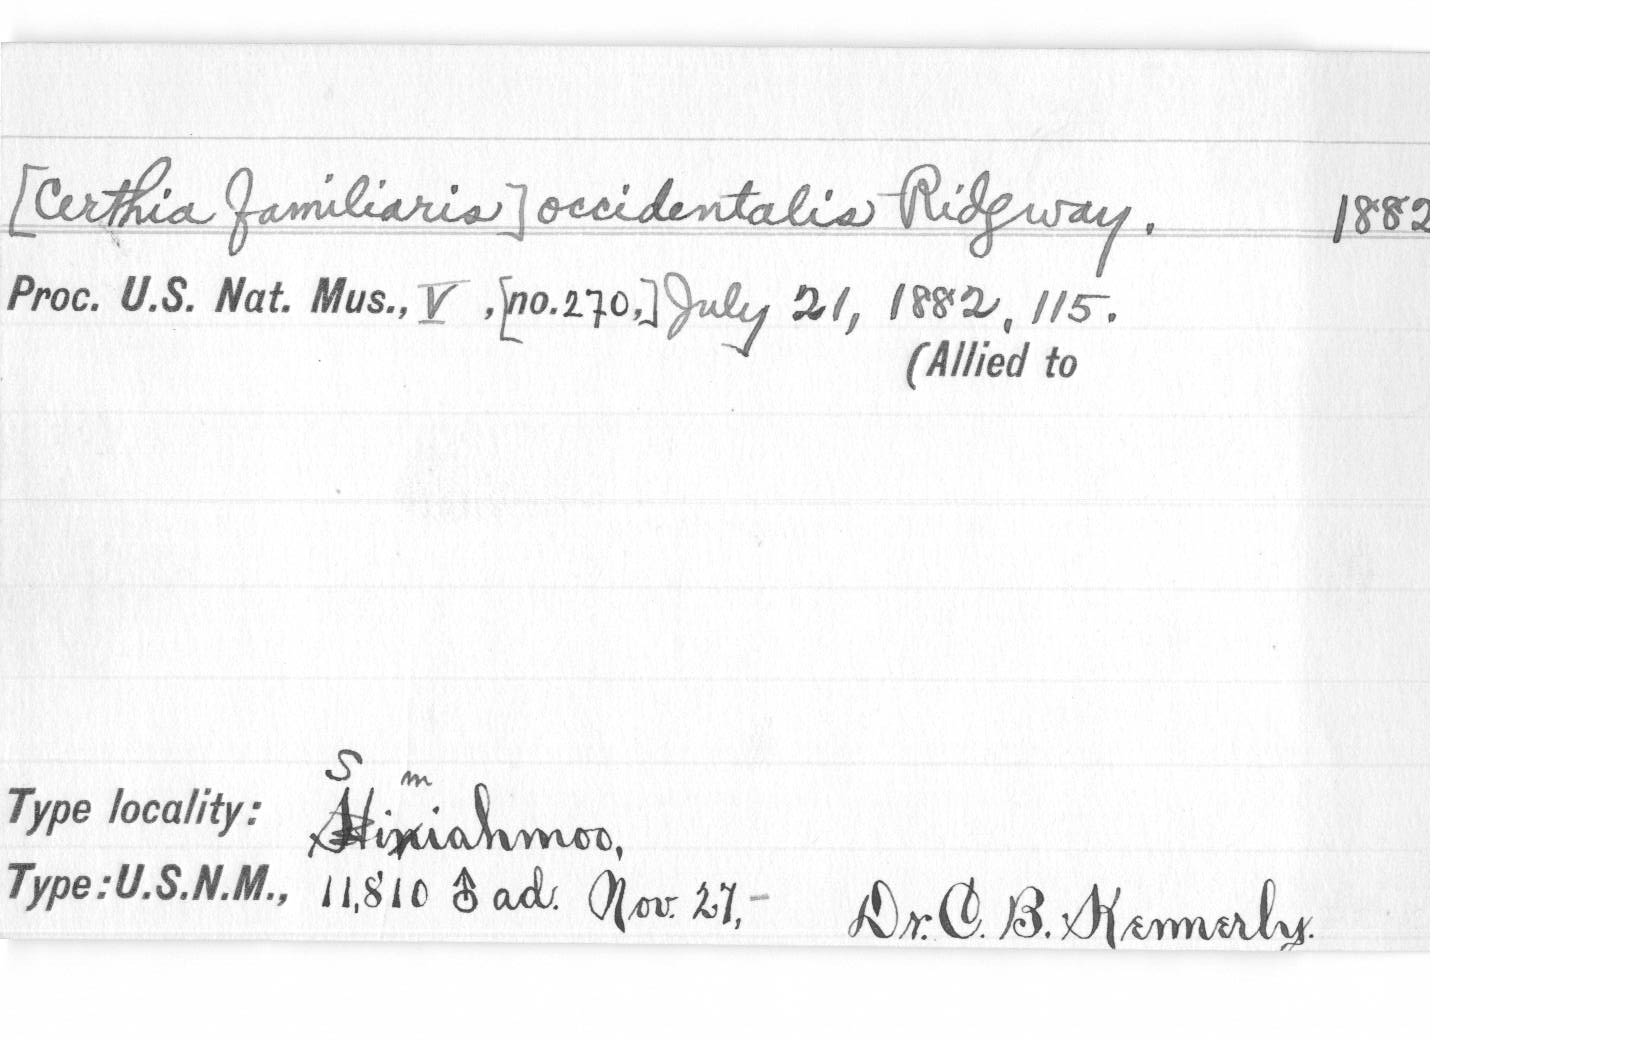 [Certhia familiaris] occidentalis Ridgway. 1882
Proc. U.S. Nat. Mus., V, [no.270,] July 21, 1882, 115.
(Allied to
S m
Type locality: Hixiahmoo,
Type: U.S.N.M., 11,810 ♂ ad. Nov. 27,- Dr. C. B. Kennerly.